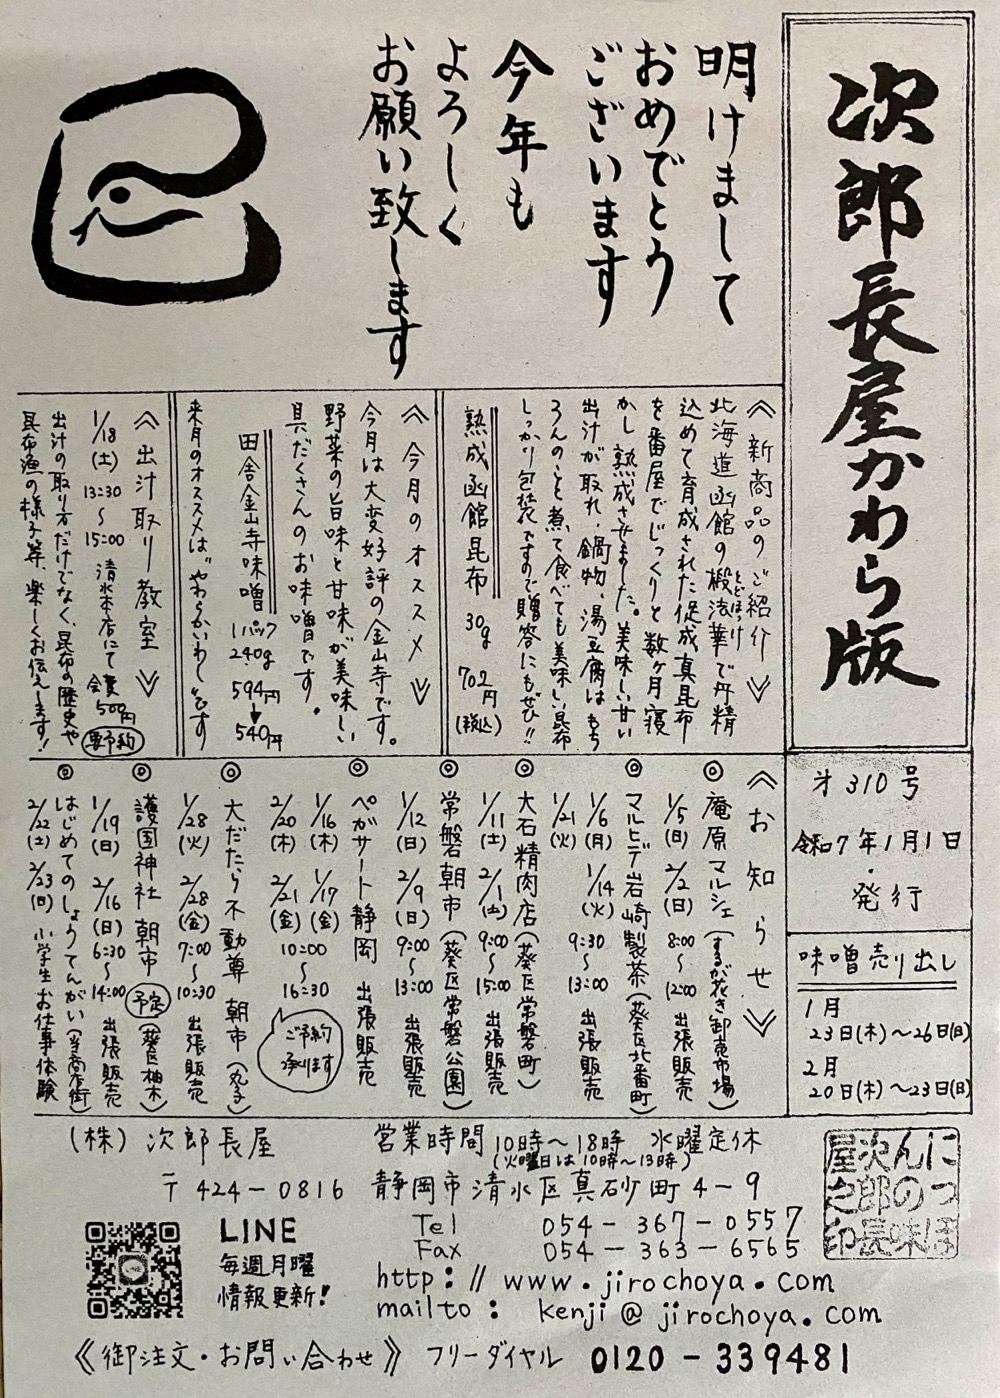 次郎長屋かわら版
明けまして
おめでとう
ございます
今年も
よろしく
お願い致します
巳
才310号
令和7年1月1日
発行
味噌売り出し
1月
23日(木)〜26日(日)
2月
20日(木)〜23日(日)
《新商品のご紹介》
北海道函館の椴法華で丹精
とどほっけ
込めて育成された促成真昆布
を番屋でじっくりと数ヶ月寝
かし、熟成させました。美味しい甘い
出汁が取れ、鍋物、湯豆腐はもち
ろんのこと煮て食べても美味しい昆布
しっかり包装ですので贈答にもぜひ!!
熟成函館昆布 30g 702円(税込)
《今月のオススメ》
今月は大変好評の金山寺です。
野菜の旨味と甘味が美味しい
具だくさんのお味噌です。
田舎金山寺味噌 1パック 240g 594円→540円
来月のオススメは“やわらかいわし”です
《出汁取り教室》
1/18(土) 13:30〜15:00 清水本店にて 会費500円 要予約
出汁の取り方だけでなく、昆布の歴史や
昆布漁の様子等、楽しくお伝えします!
《お知らせ》
◎庵原マルシェ(するが花き卸売市場)
1/5(日) 2/2(日) 8:00〜12:00 出張販売
◎マルヒデ岩崎製茶(葵区北番町)
1/6(月) 1/14(火) 9:30〜13:00 出張販売
1/21(火)
◎大石精肉店(葵区常磐町)
1/11(土) 2/1(土) 9:00〜15:00 出張販売
◎常磐朝市(葵区常磐公園)
1/12(日) 2/9(日) 9:00〜13:00 出張販売
◎ぺガサート静岡 出張販売
1/16(木) 1/17(金) 10:00〜16:30
2/20(木) 2/21(金)
ご予約
承ります
◎大だたら不動尊 朝市(丸子)
1/28(火) 2/28(金) 7:00〜10:30 出張販売
◎護国神社 朝市 予定(葵区柚木)
1/19(日) 2/16(日) 6:30〜14:00 出張販売
◎はじめてのしょうてんがい
2/22(土) 2/23(日) 小学生お仕事体験
(株)次郎長屋 営業時間 10時〜18時 水曜定休
(火曜日は10時〜13時)
〒424-0816 静岡市清水区真砂町4-9
Tel 054-367-0557
Fax 054-363-6565
http://www.jirochoya.com
mailto: kenji@jirochoya.com
LINE
毎週月曜
情報更新!
《御注文・お問い合わせ》 フリーダイヤル 0120-339481
につほ
んの味
次郎長
屋之印